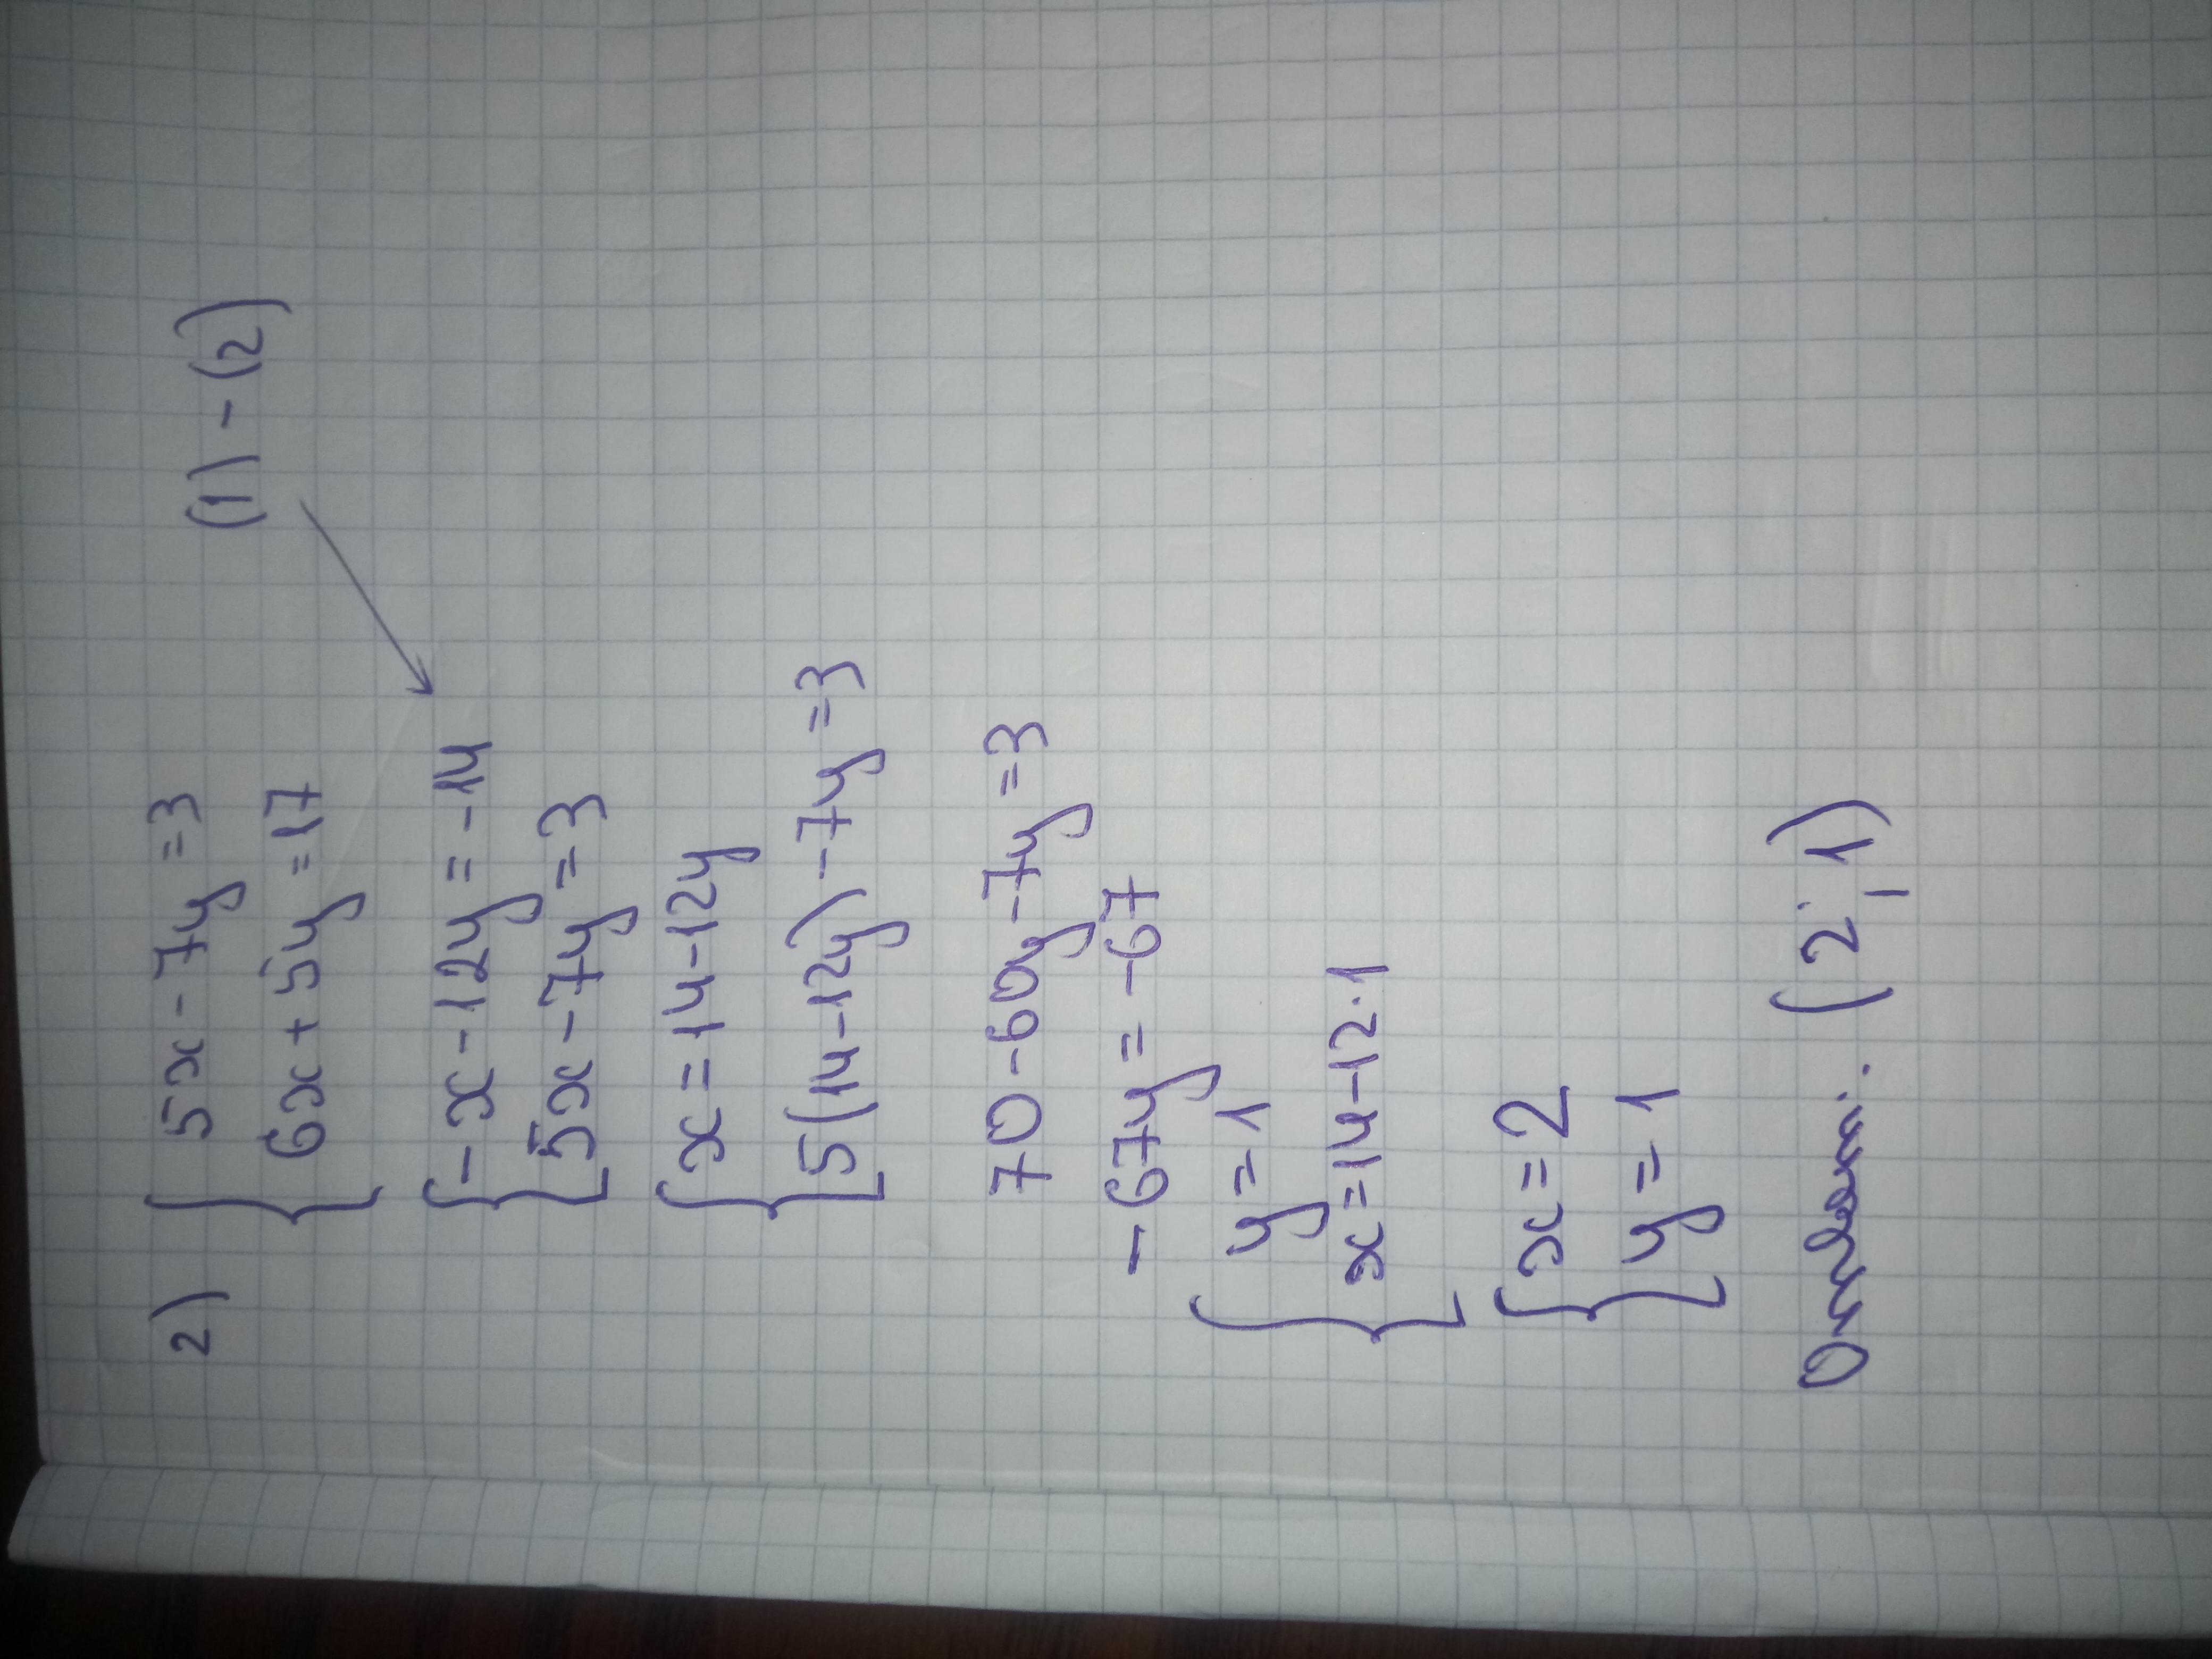 2) { 5x - 7y = 3 (1) - (2)
6x + 5y = 17
{ -x - 12y = -14
5x - 7y = 3
{ x = 14 - 12y
5(14 - 12y) - 7y = 3
70 - 60y - 7y = 3
-67y = -67
{ y = 1
x = 14 - 12 · 1
{ x = 2
y = 1
Ответ: (2; 1)